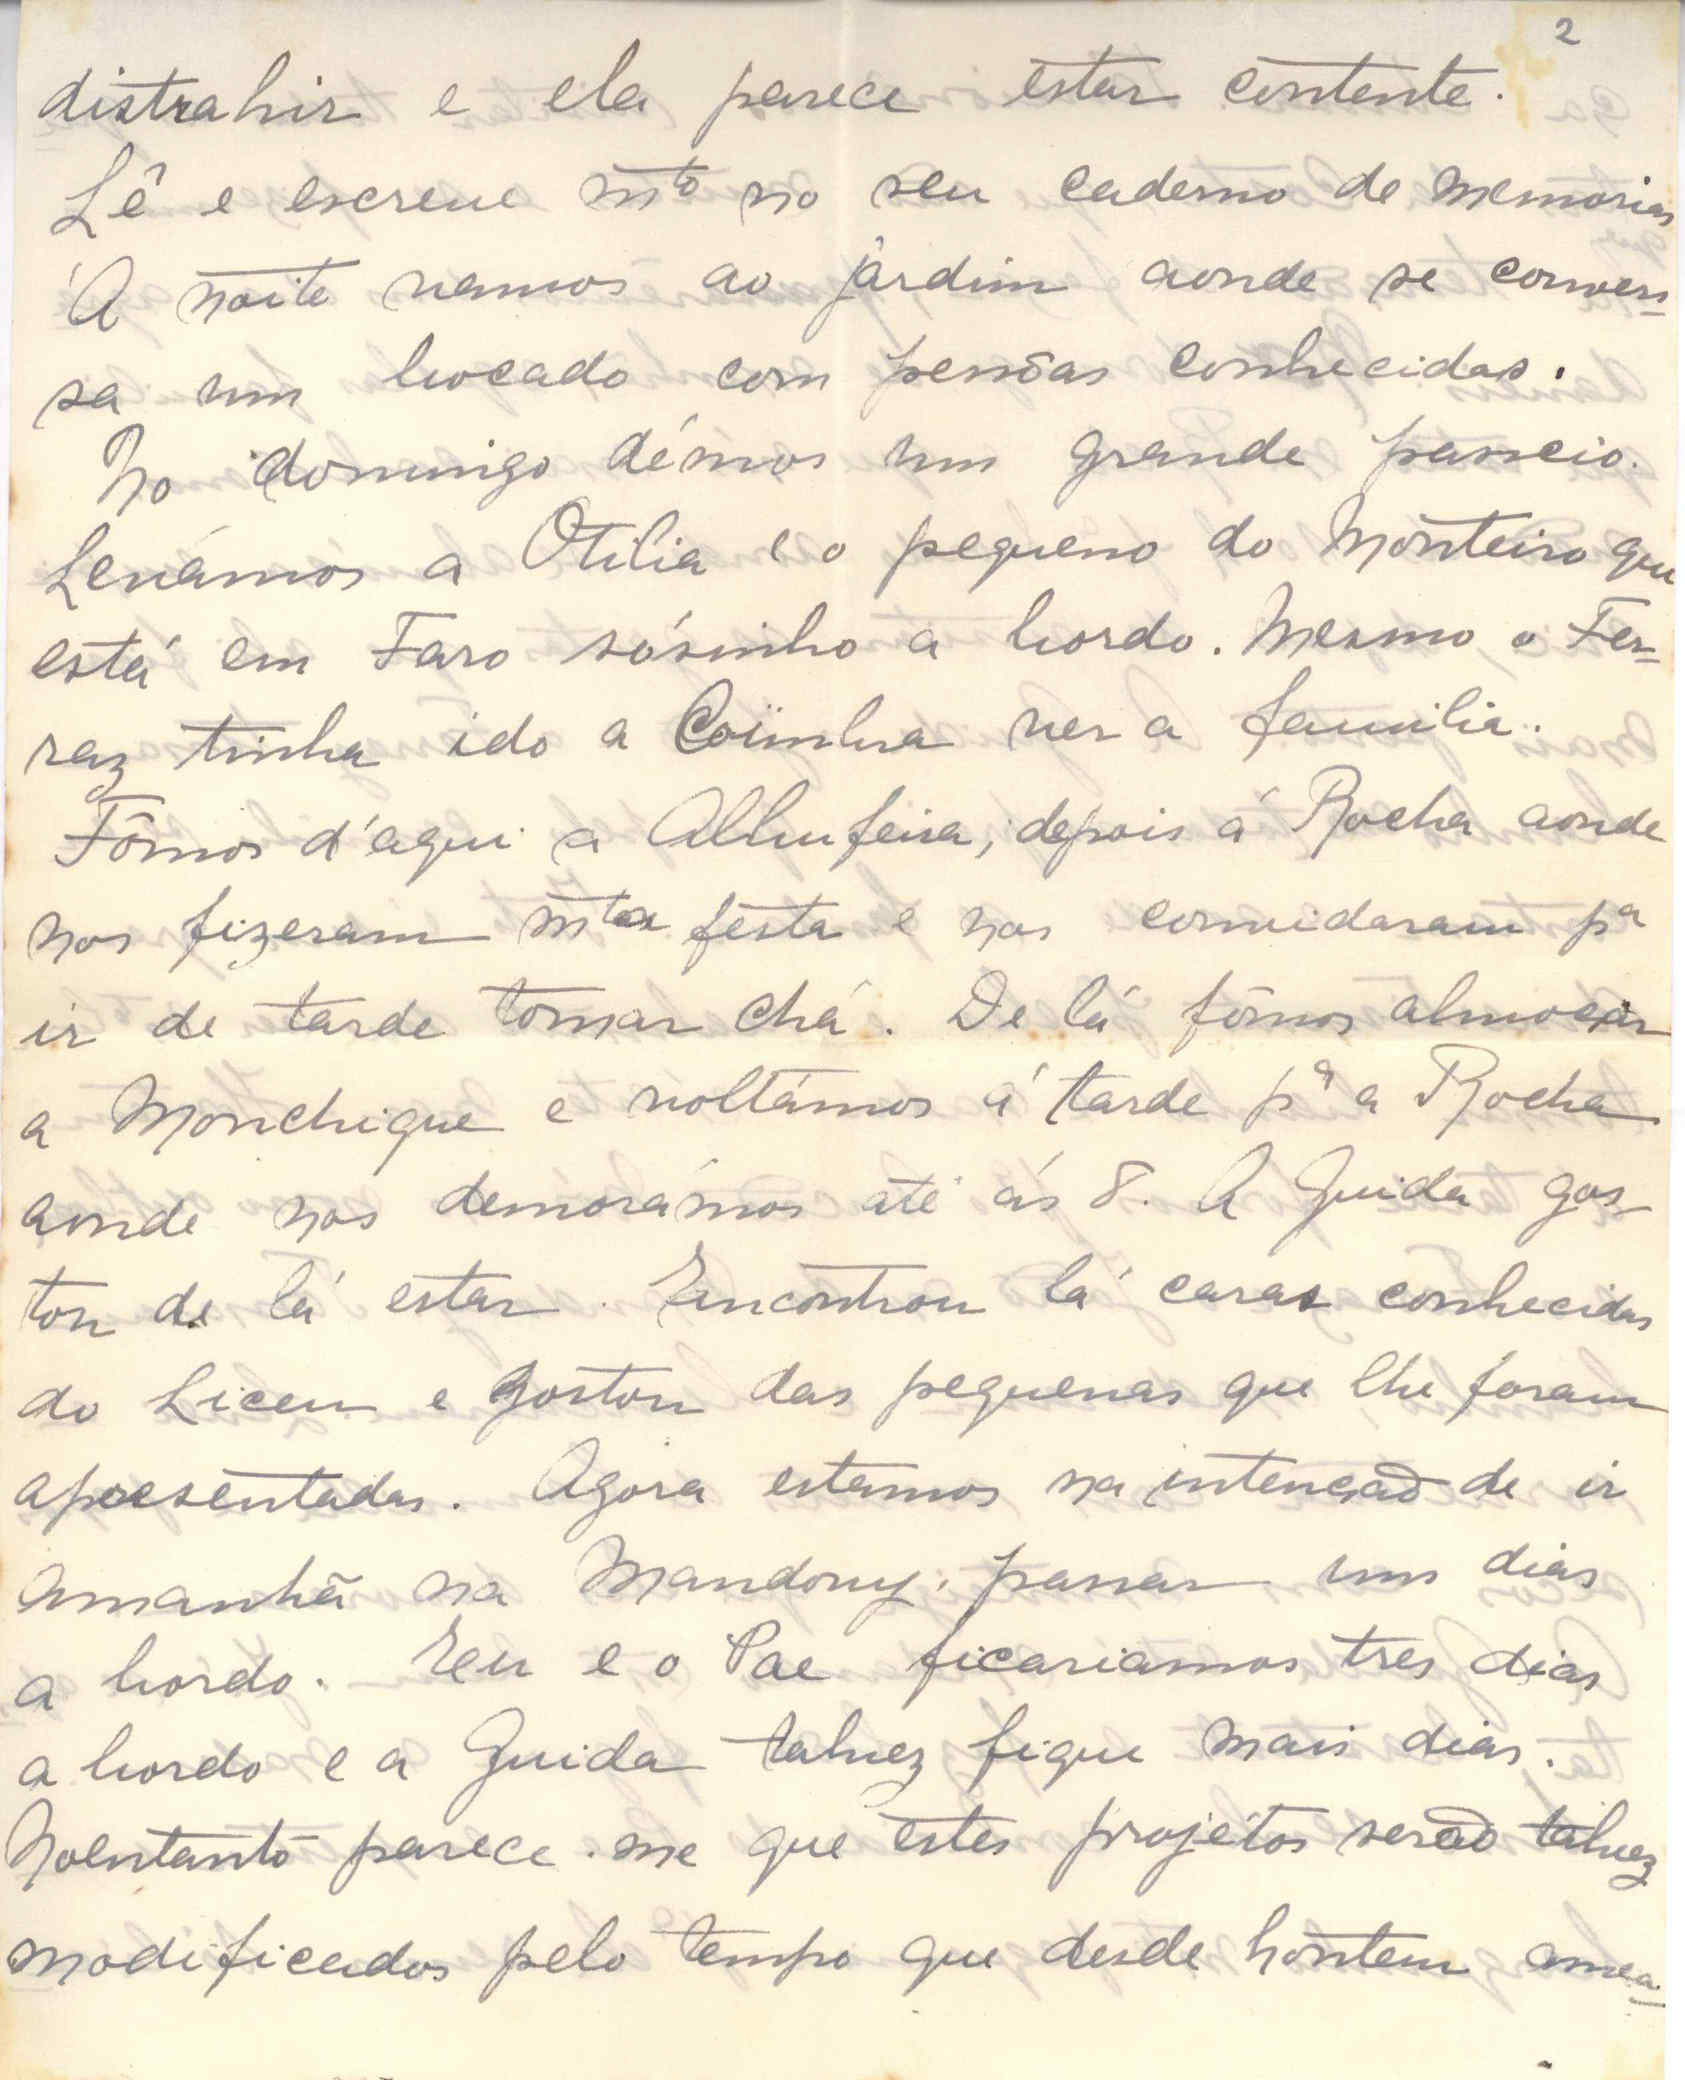 2
distrahir e ela parece estar contente.
Lê e escreve mto no seu caderno de memorias
Á noite vamos ao jardim aonde se conver-
sa um bocado com pessôas conhecidas.
No domingo démos um grande passeio.
Levámos a Otilia e o pequeno do Monteiro que
está em Faro sósinho a bordo. Mesmo o Fer-
raz tinha ido a Coïmbra ver a familia.
Fômos d'aqui a Albufeira, depois á Rocha aonde
nos fizeram mta festa e nos convidaram pa
ir de tarde tomar chá. De lá fômos almoçar
a Monchique e voltámos á tarde pa a Rocha
aonde nos demorámos até ás 8. A Guida gos-
tou de lá estar. Encontrou lá caras conhecidas
do Liceu e gostou das pequenas que lhe foram
apresentadas. Agora estamos na intenção de ir
amanhã na Mandony, passar uns dias
a bordo. Eu e o Pae ficariamos tres dias
a bordo e a Guida talvez fique mais dias.
Noentanto parece-me que estes projétos serão talvez
modificados pelo tempo que desde hontem amea-